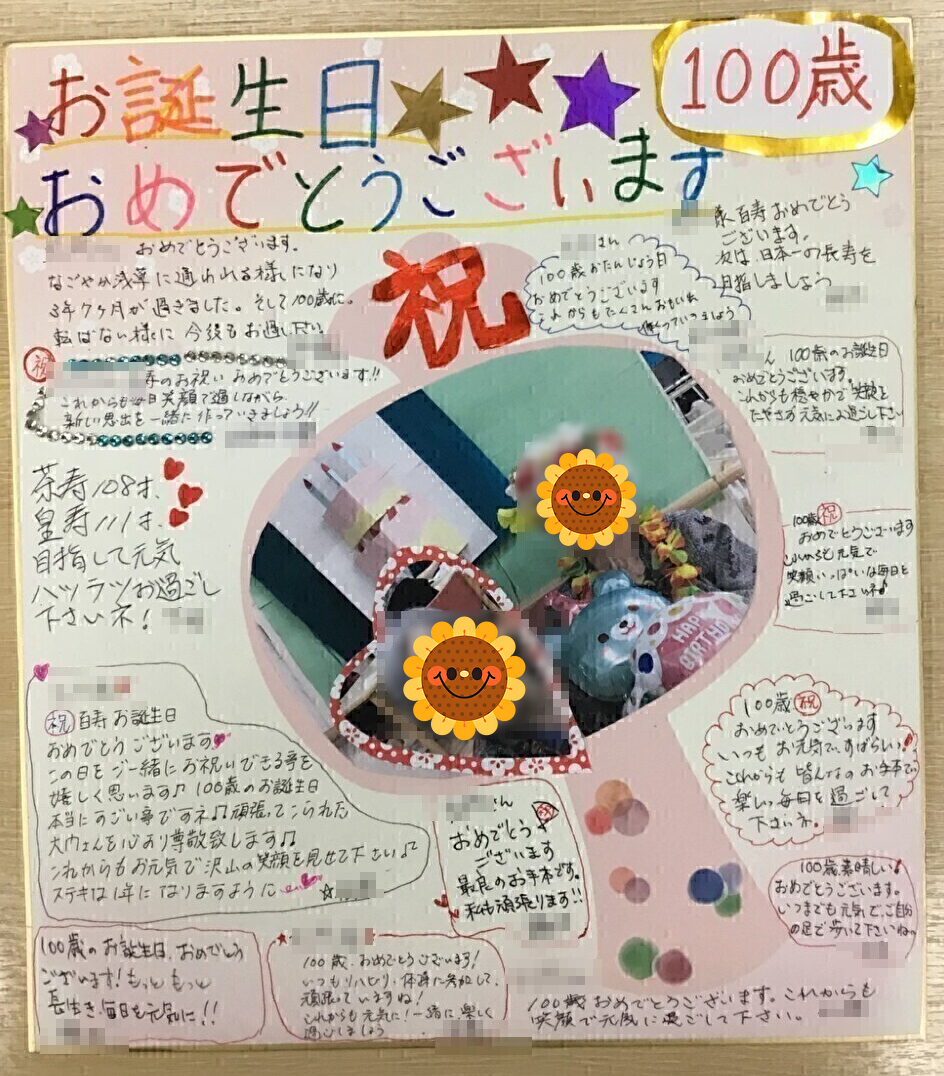 お誕生日
100歳
おめでとうございます
おめでとうございます。
なごやか浅草に通われる様になり
3年7ヶ月が過ぎました。そして100歳に。
転ばない様に今後もお過し下さい
祝
さん
100歳おたんじょう日
おめでとうございます
これからもたくさんおもいで
作っていきましょう
百寿おめでとう
ございます。
次は、日本一の長寿を
目指しましょう
祝
寿のお祝いおめでとうございます!!
これからも毎日笑顔で過しながら
新しい思出を一緒に作っていきましょう!!
ん 100歳のお誕生日
おめでとうございます。
これからも穏やかで笑顔を
たやさず元気にお過ごし下さい
茶寿108才、
皇寿111才、
目指して元気
ハツラツお過ごし
下さいネ!
100歳祝
おめでとうございます
これからも元気で
笑顔いっぱいな毎日を
過ごして下さいね♪
HAPPY
BIRTHDAY
祝 百寿お誕生日
おめでとうございます
この日をご一緒にお祝いできる事を
嬉しく思います♫ 100歳のお誕生日
本当にすごい事ですネ♪頑張ってこられた
大内さんを心より尊敬致します♫
これからもお元気で沢山の笑顔を見せて下さい♫
ステキな1年になりますように
100歳 祝
おめでとうございます
いつもお元気で、すばらしい!
これからも皆んなのお手本で
楽しい毎日を過ごして
下さいネ。
さん 祝
おめでとう
ございます
最良のお手本です。
私も頑張ります!!
100歳素晴しい♪
おめでとうございます。
いつまでも元気で、ご自分
の足で歩いて下さいね。
100歳のお誕生日、おめでとう
ございます!もっともっと
長生き、毎日を元気に!!
100歳、おめでとうございます!
いつもリハビリ・体操に参加して、
頑張っていますね!
これからも元気に!一緒に楽しく
過ごしましょう
100歳おめでとうございます。これからも
笑顔で元気に過ごして下さい。